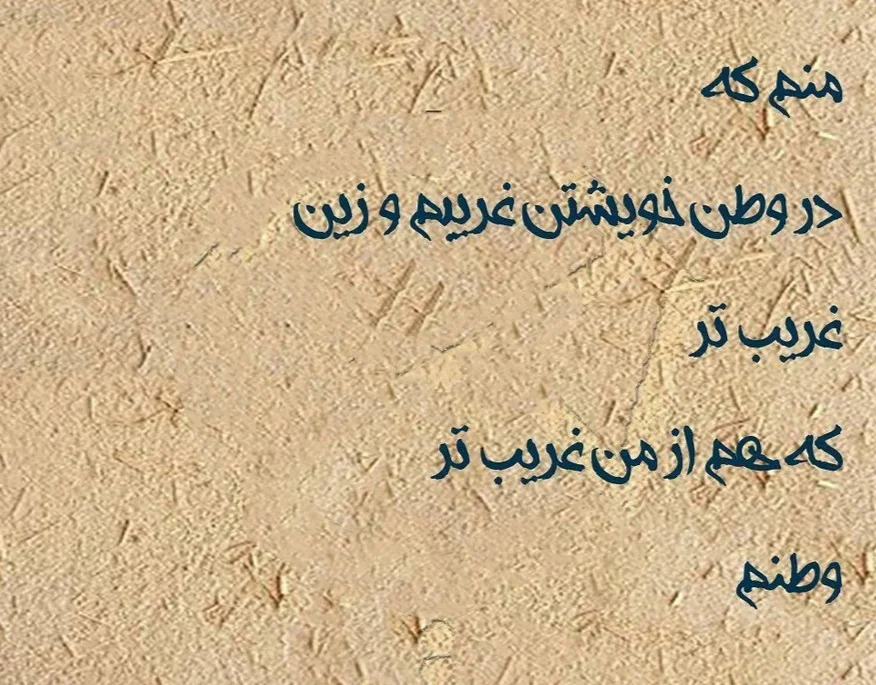 منم که
در وطن خویشتن غریبم و زین
غریب تر
که هم از من غریب تر
وطنم